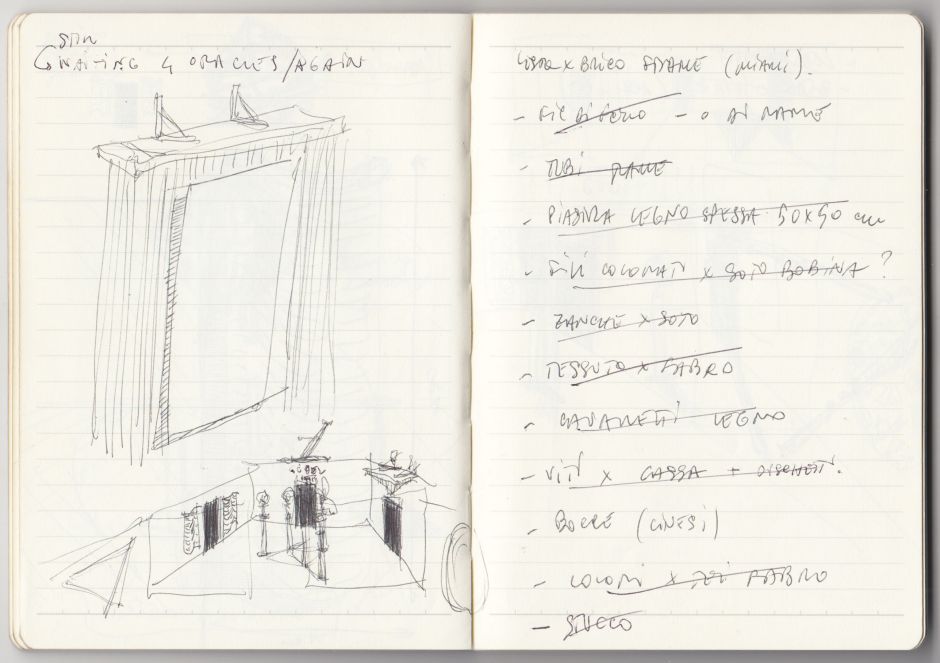 WAITING 4 ORACLES/AGAIN
x BRICO (MIAMI).
- FILI DI FERRO - O DI RAME
- TUBI RAME
- LEGNO SPESSA 50X50 cm
- FILI COLORATI x SOTO BOBINA ?
- ZANCHE x SOTO
- TESSUTO x FABRO
- CAVALLETTI LEGNO
- VITI x CASSA + DISCHETTI.
- BOCCE (CINESI)
- COLORI x FABRO
- STUCCO